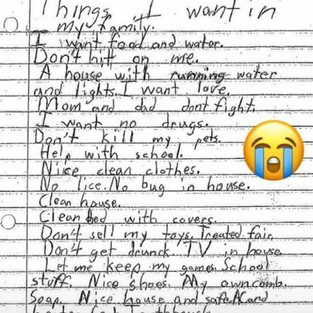 Things I want in
my family.
I want food and water.
Don't hit on me.
A house with running water
and lights. I want love.
Mom and dad don't fight.
I want no drugs.
Don't kill my pets.
Help with school.
Nice clean clothes.
No lice. No bug in house.
Clean house.
Clean bed with covers.
Don't sell my toys. Treated fair.
Don't get drunk. TV in house
Let me keep my games. School
stuff. Nice shoes. My own comb.
Soap. Nice house and safe AC and